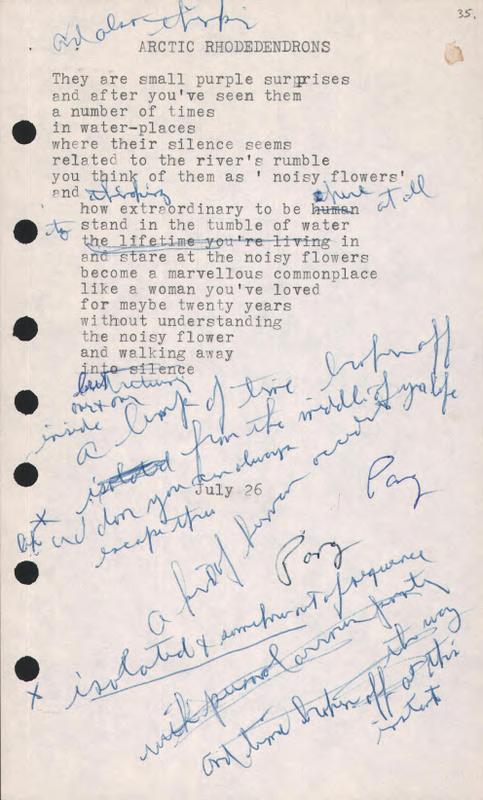 35.
and also
ARCTIC RHODEDENDRONS
They are small purple surprises
and after you've seen them
a number of times
in water-places
where their silence seems
related to the river's rumble
you think of them as ' noisy flowers'
and thinking
how extraordinary to be human here at all
to stand in the tumble of water
the lifetime you're living in
and stare at the noisy flowers
become a marvellous commonplace
like a woman you've loved
for maybe twenty years
without understanding
the noisy flower
and walking away
into silence
but returning
over & over
inside a lump of time broken off
isolated from the middle of your life
and don you can always
escape thru
July 26
a kind of
Pang
Pang
x isolated & somehow out of sequence
with
and time broken off at this
the way
instant